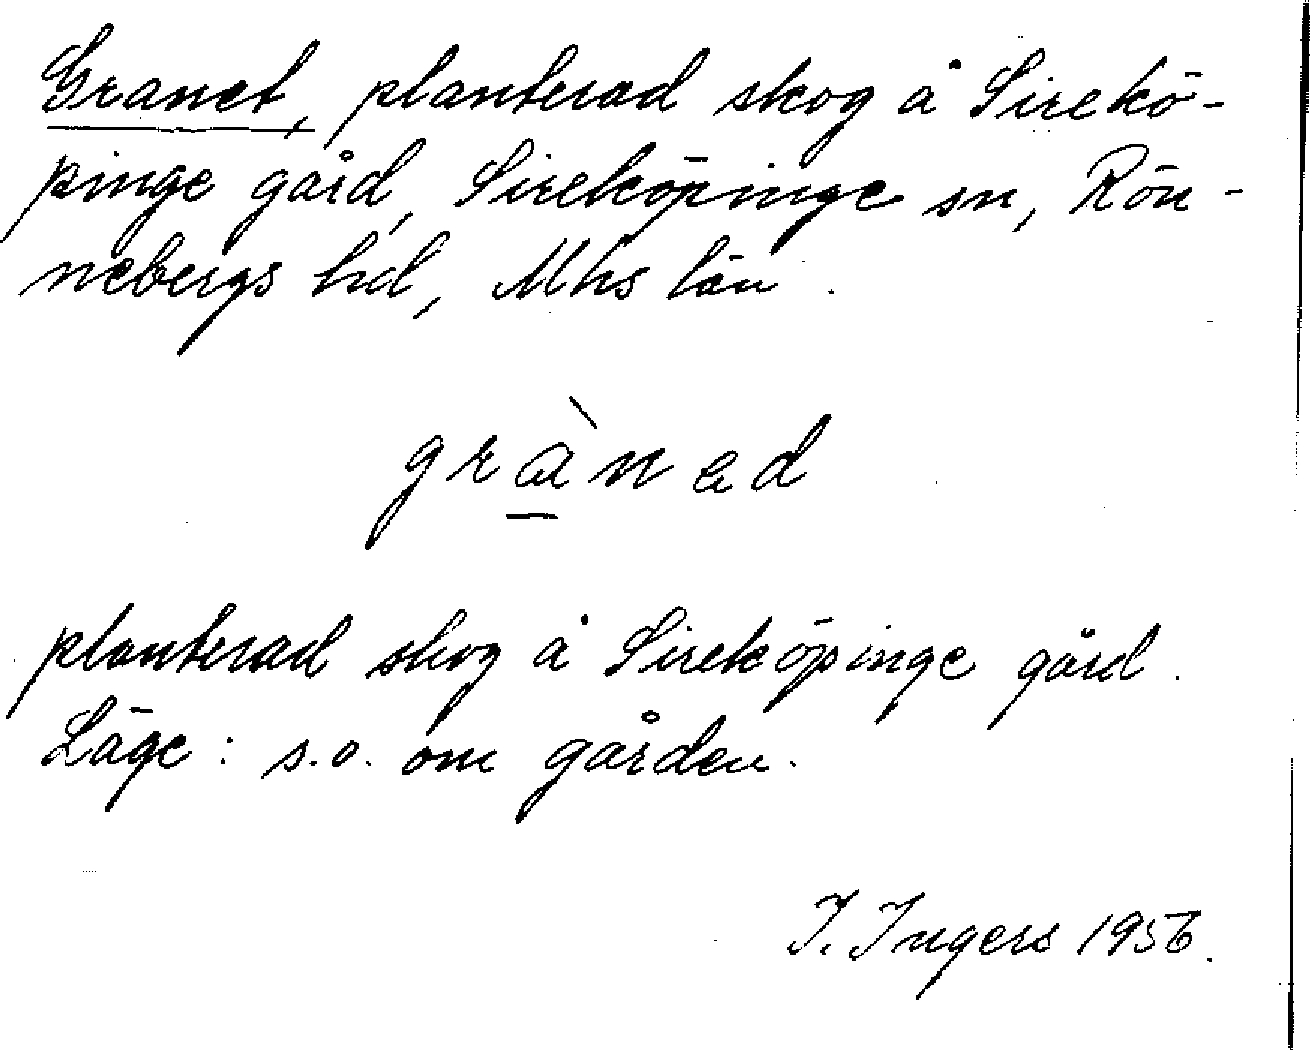 Granet, planterad skog å Sirekö-
pinge gård, Sireköpinge sn, Rön-
nebergs hd, Mhs län.
gràned
planterad skog å Sireköpinge gård.
Läge: s.o. om gården.
I. Ingers 1956.